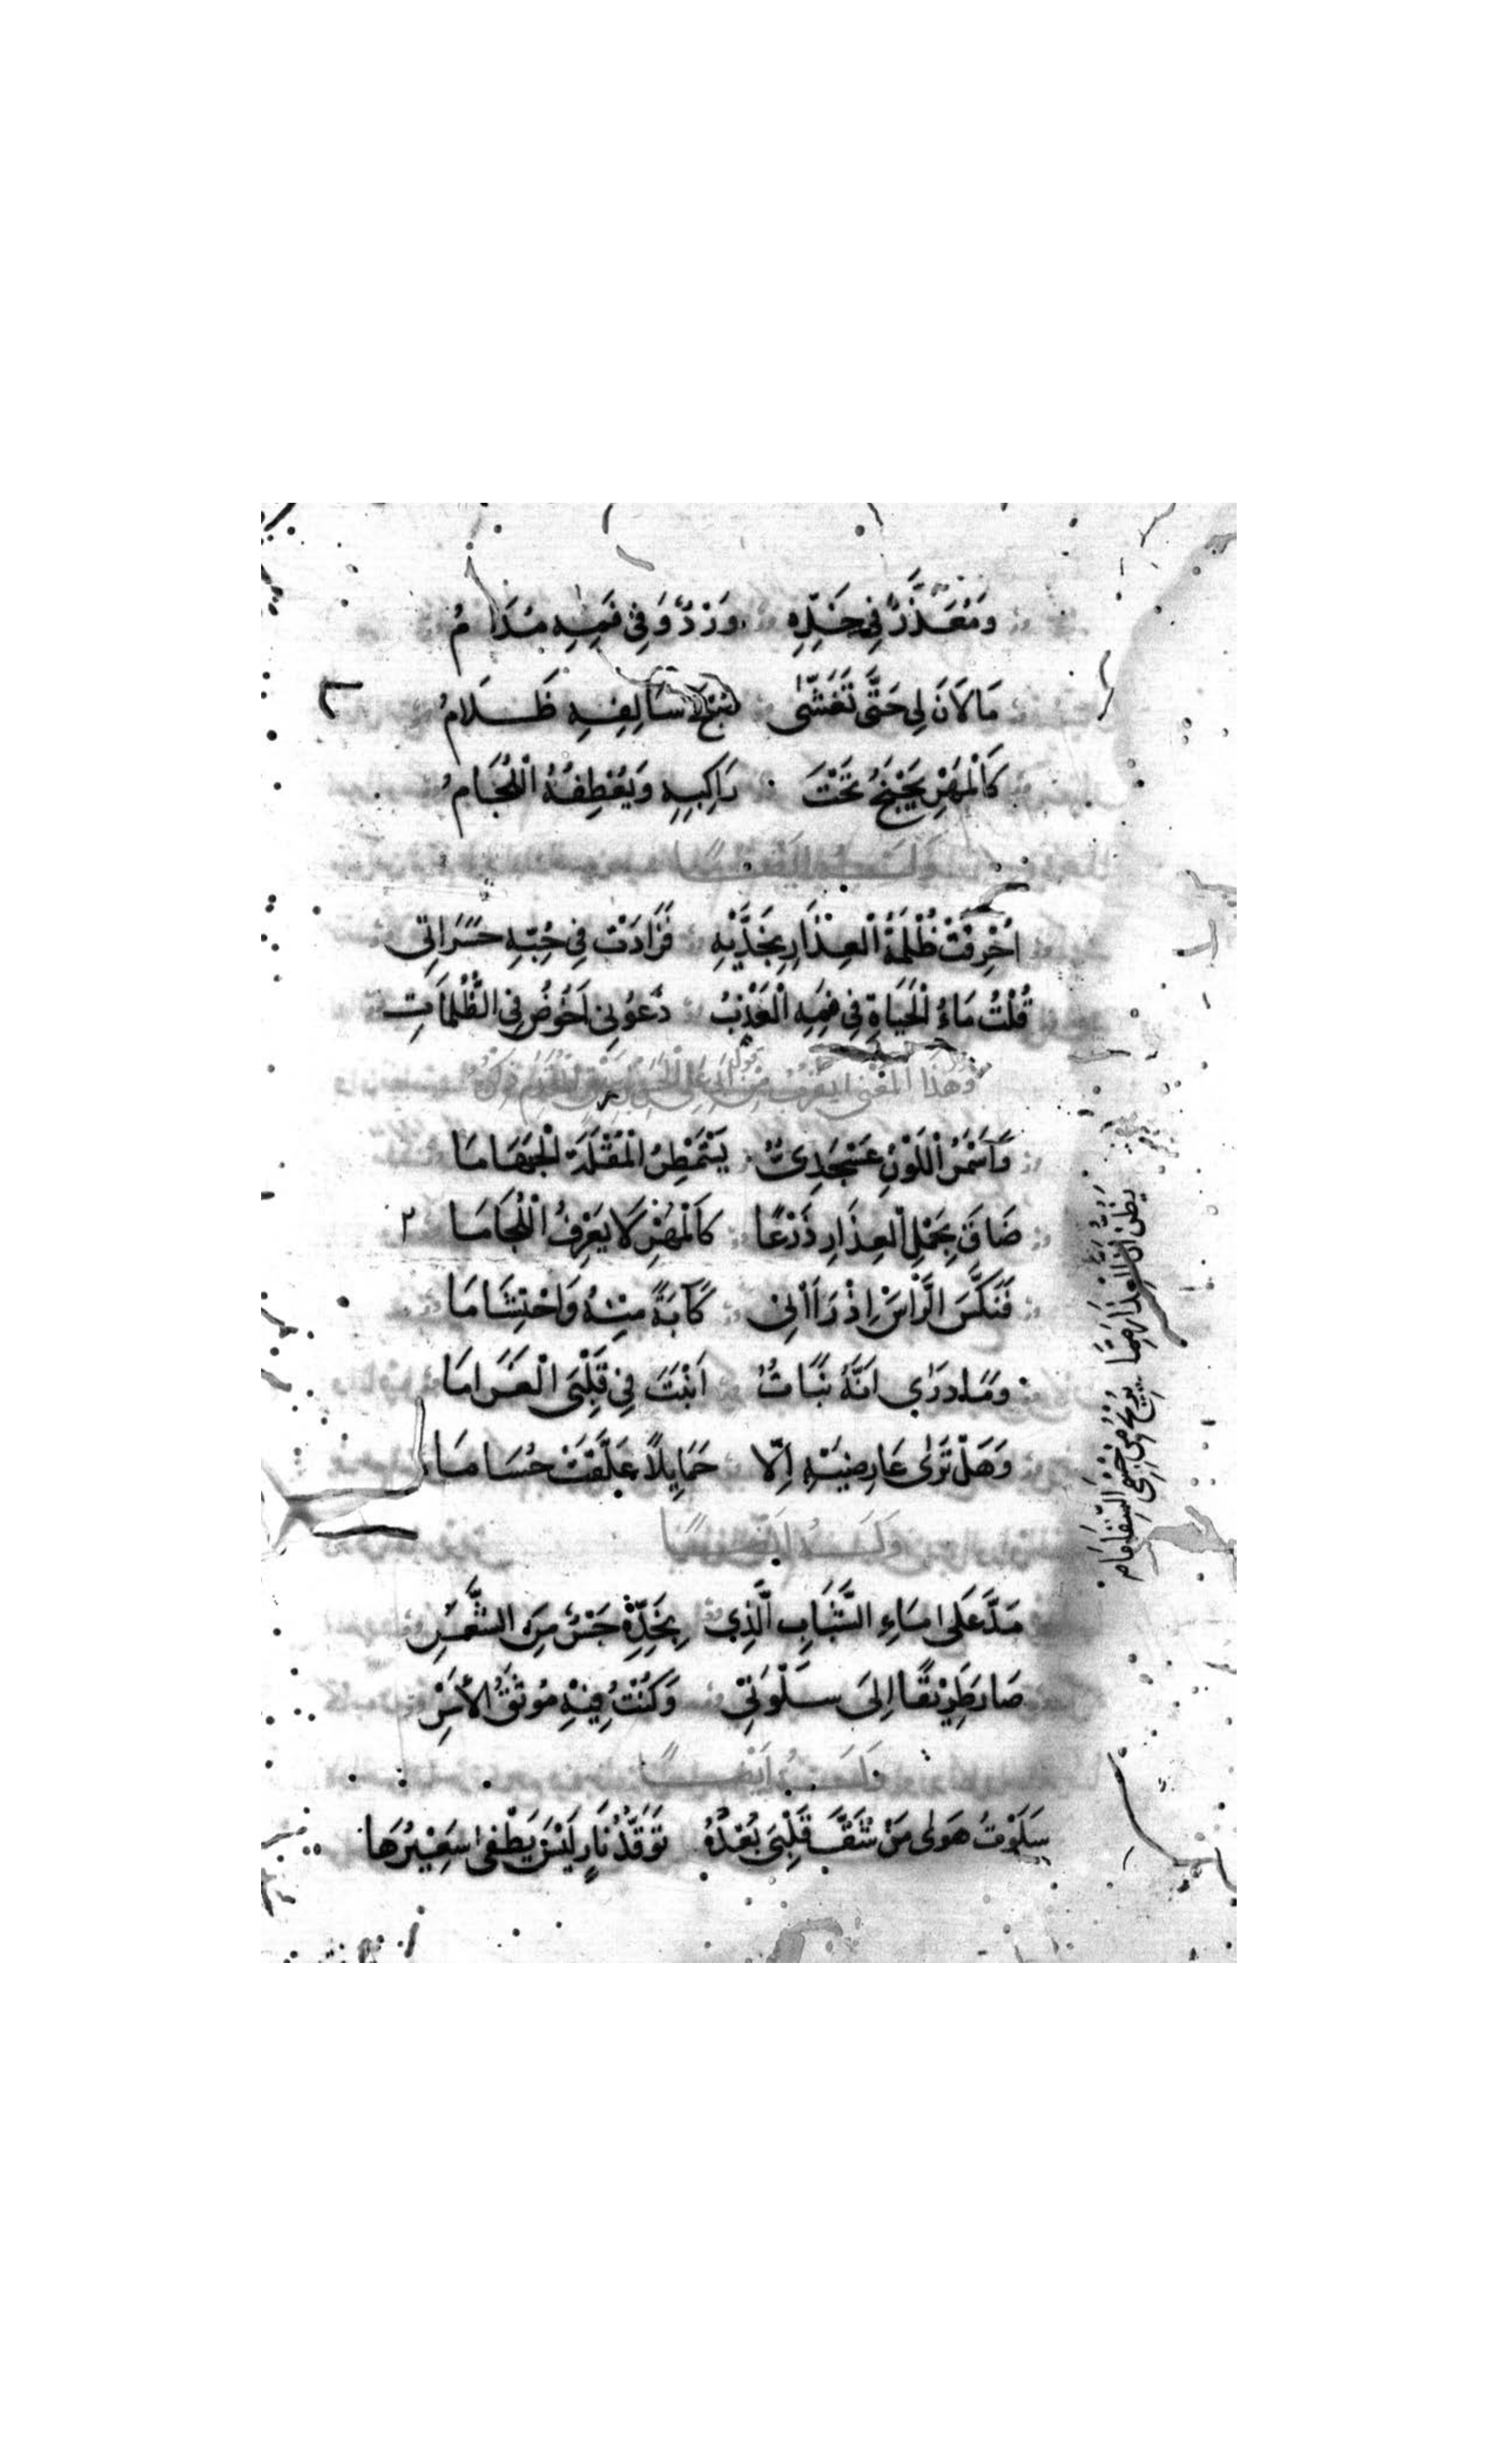 وَمُعَذَّرٌ فِي خَدِّهِ وَرْدٌ وَفِي فَمِهِ مُدَامُ
مَا لَانَ لِي حَتَّى تَغَشَّى صُبْحَ سَالِفِهِ ظَلَامُ
كَالْمُهْرِ يَجْنَحُ تَحْتَ رَاكِبِهِ وَيَعْطِفُهُ اللِّجَامُ
وَلَهُ أَيْضًا
أَحْرَقَتْ ظُلْمَةُ الْعِذَارِ بِخَدَّيْهِ فَزَادَتْ فِي حُبِّهِ حَسَرَاتِي
قُلْتُ مَاءُ الْحَيَاةِ فِي فَمِهِ الْعَذْبِ دَعُونِي أَخُوضُ فِي الظُّلُمَاتِ
وَهَذَا الْمَعْنَى
وَأَسْمَرُ اللَّوْنِ عَسْجَدِيٌّ يَسْتَمْطِرُ الْمُقْلَةَ الْجَهَامَا
ضَاقَ بِحَمْلِ الْعِذَارِ ذَرْعًا كَالْمُهْرِ لَا يَعْرِفُ اللِّجَامَا ٢
فَنَكَّسَ الرَّاسَ اِذْ رَاَانِي كَآبَةً مِنْهُ وَاحْتِشَامَا
وَمَا دَرَى اَنَّهُ نَبَاتٌ اَنْبَتَ فِي قَلْبِي الْغَرَامَا
وَهَلْ تَرَى عَارِضَيْهِ اِلَّا حَمَايِلًا عَلَّقَتْ حُسَامَا
يَظُنُّ اَنَّ الْعِذَارَ مِمَّا يُزِيحُ عَنْ جِسْمِيَ السِّقَامَا
وَلَهُ اَيْضًا
مَدَّ عَلَى مَاءِ الشَّبَابِ الَّذِي بِخَدِّهِ جِسْرٌ مِنَ الشَّعْرِ
صَارَ طَرِيْقًا اِلَى سَلْوَتِي وَكُنْتُ فِيْهِ مُوثَقَ الْاَسْرِ
وَلَهُ اَيْضًا
سَلَوْتُ هَوَى مَنْ شَفَّ قَلْبِيَ بُعْدُهُ تَوَقُّدُ نَارٍ لَيْسَ يَطْفَى سَعِيْرُهَا